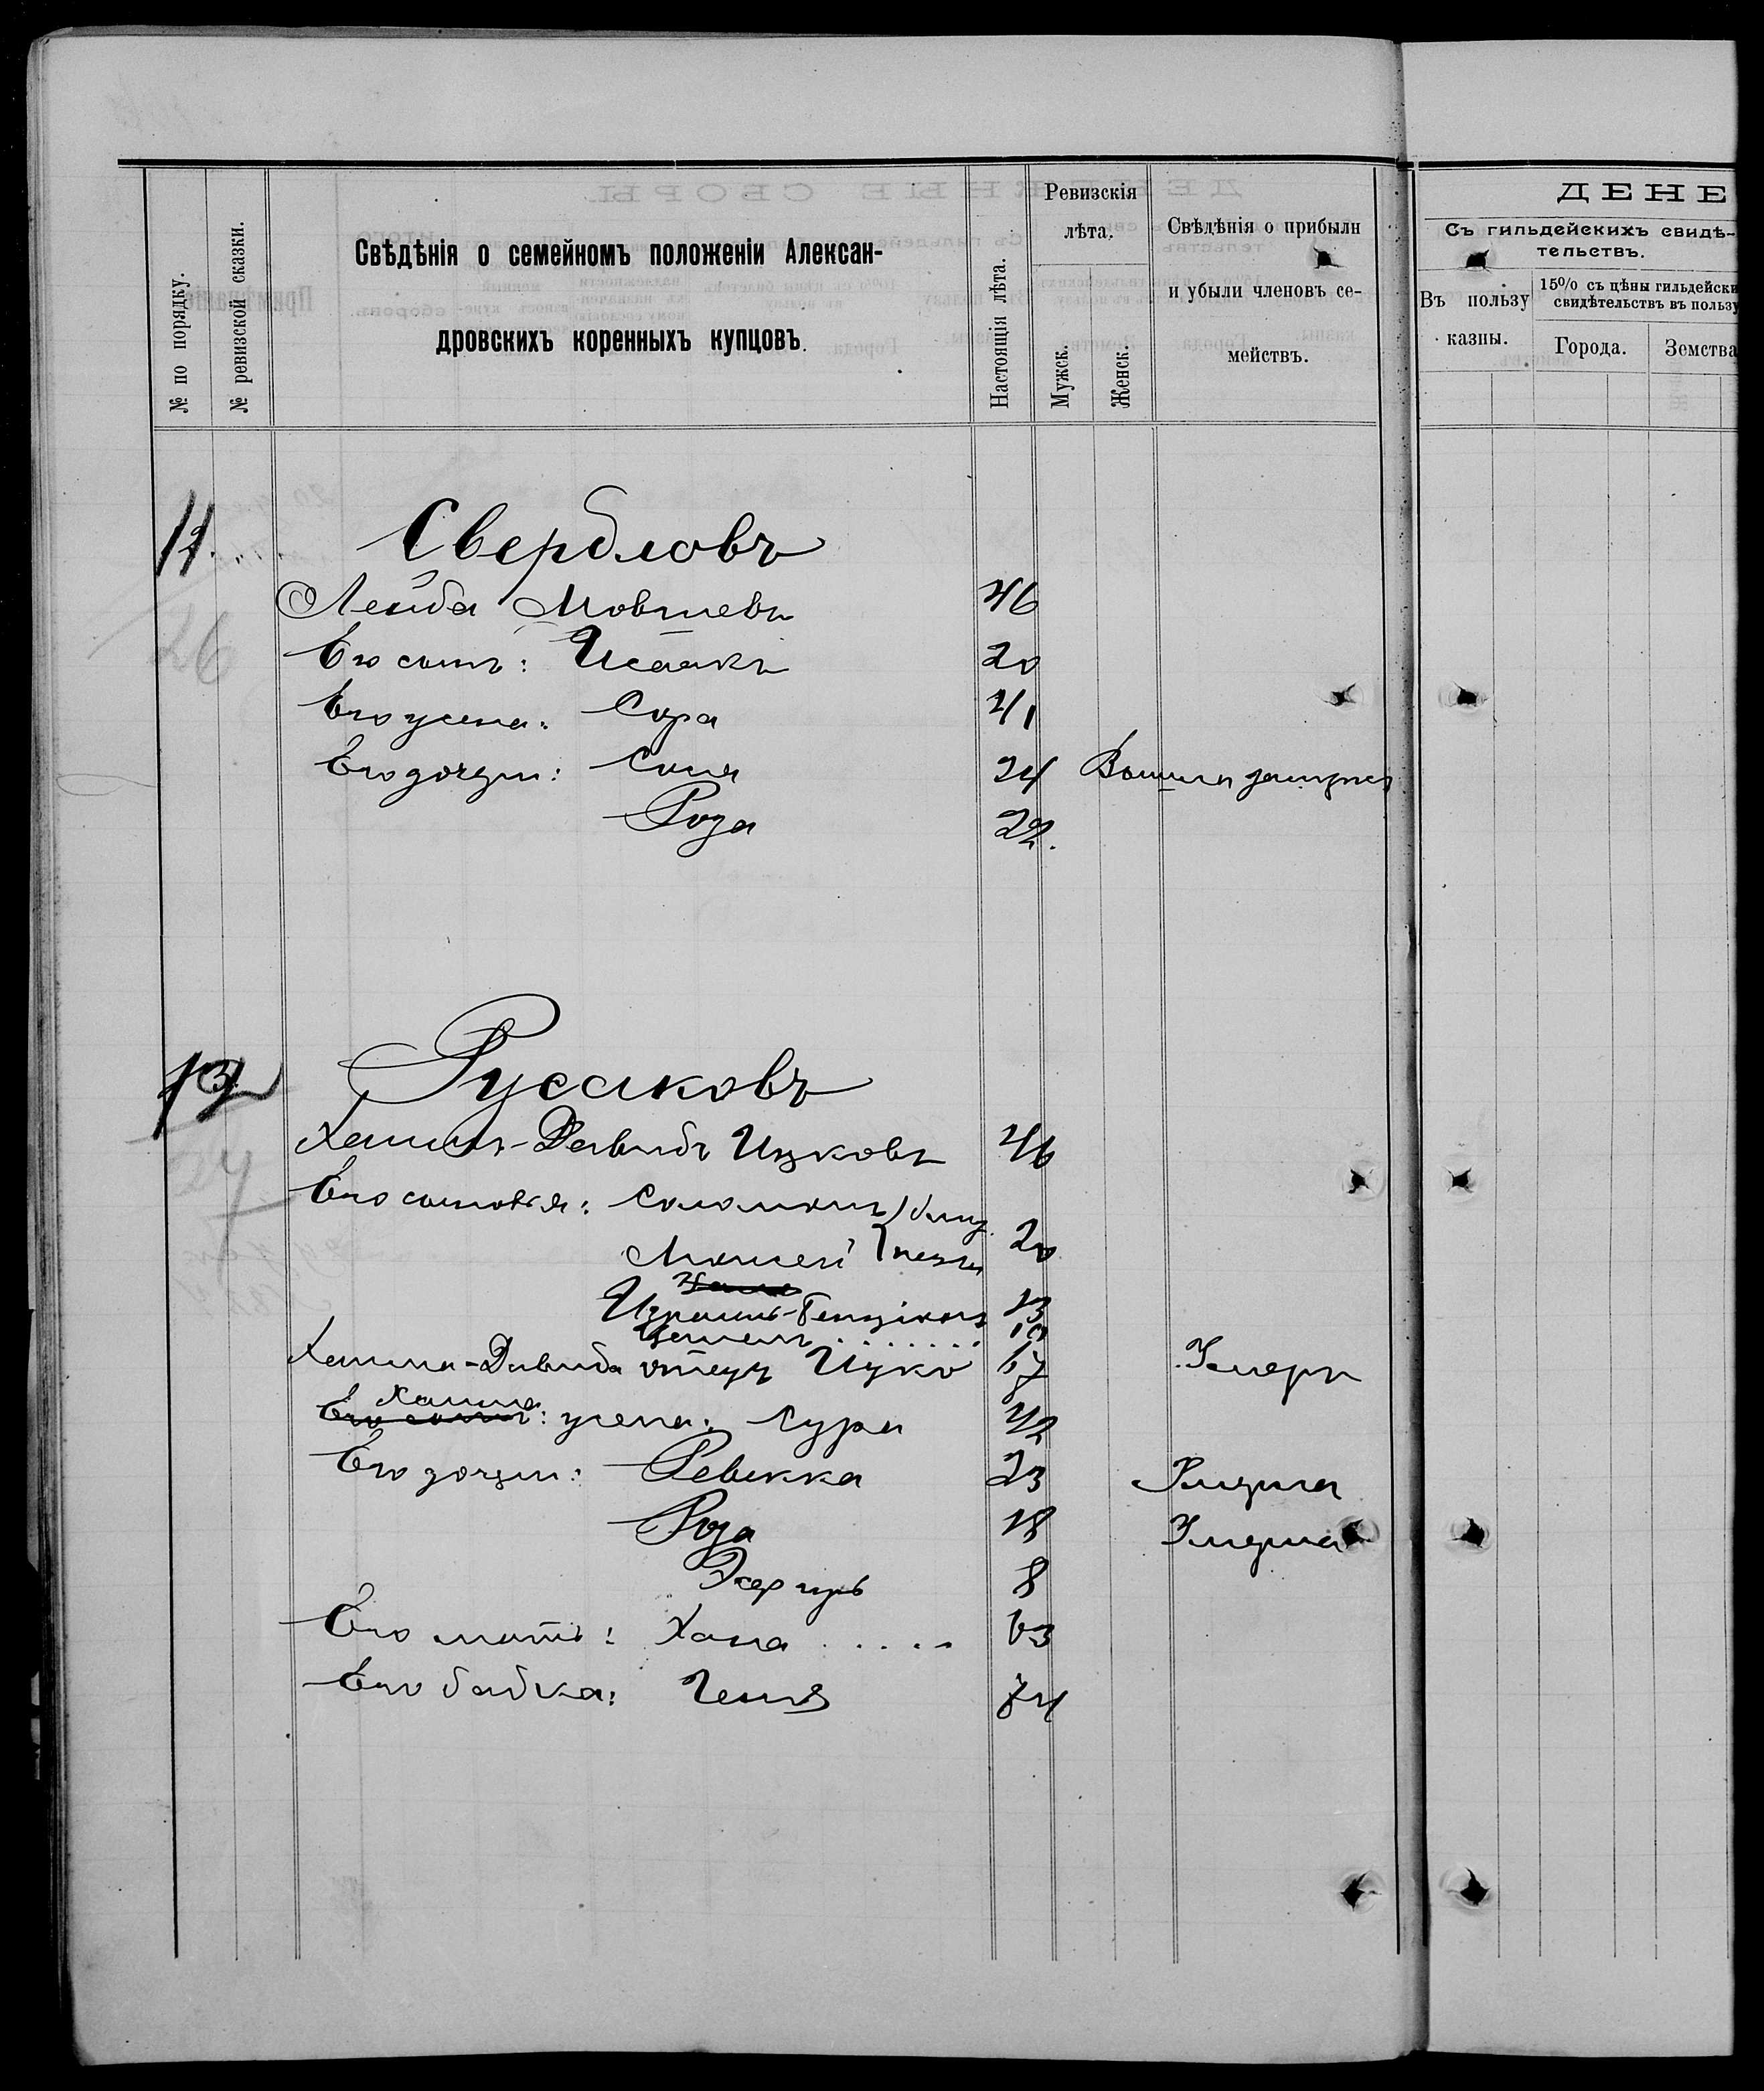 № по порядку.
№ ревизской сказки.
Свѣдѣнія о семейномъ положеніи Алексан-
дровскихъ коренныхъ купцовъ.
Настоящія лѣта.
Ревизскія
лѣта.
Мужск.
Женск.
Свѣдѣнія о прибыли
и убыли членовъ се-
мействъ.
ДЕНЕ
Съ гильдейскихъ свидѣ-
тельствъ.
Въ пользу
казны.
15% съ цѣны гильдейски
свидѣтельствъ въ пользу
Города.
Земства
11. Свердловъ
26
Лейба Мовшевъ 46
Его сынъ: Исаакъ 20
Его жена: Сора 41
Его дочери: Соня 24 Вышла замужъ
Роза 22.
Русаковъ
24
Хаимъ-Давидъ Ицковъ 46
Его сыновья: Соломонъ } близ
Моисей } нецы 20
Израиль-Бенціонъ 13
10
Хаима-Давида отецъ Ицко 67 Умеръ
Хаима
Его сынъ: жена: Сура 42
Его дочери: Ревекка 23 Умерла
Роза 18 Умерла
Эсфирь 8
Его мать: Хана ..... 63
Его бабка: Геня 74